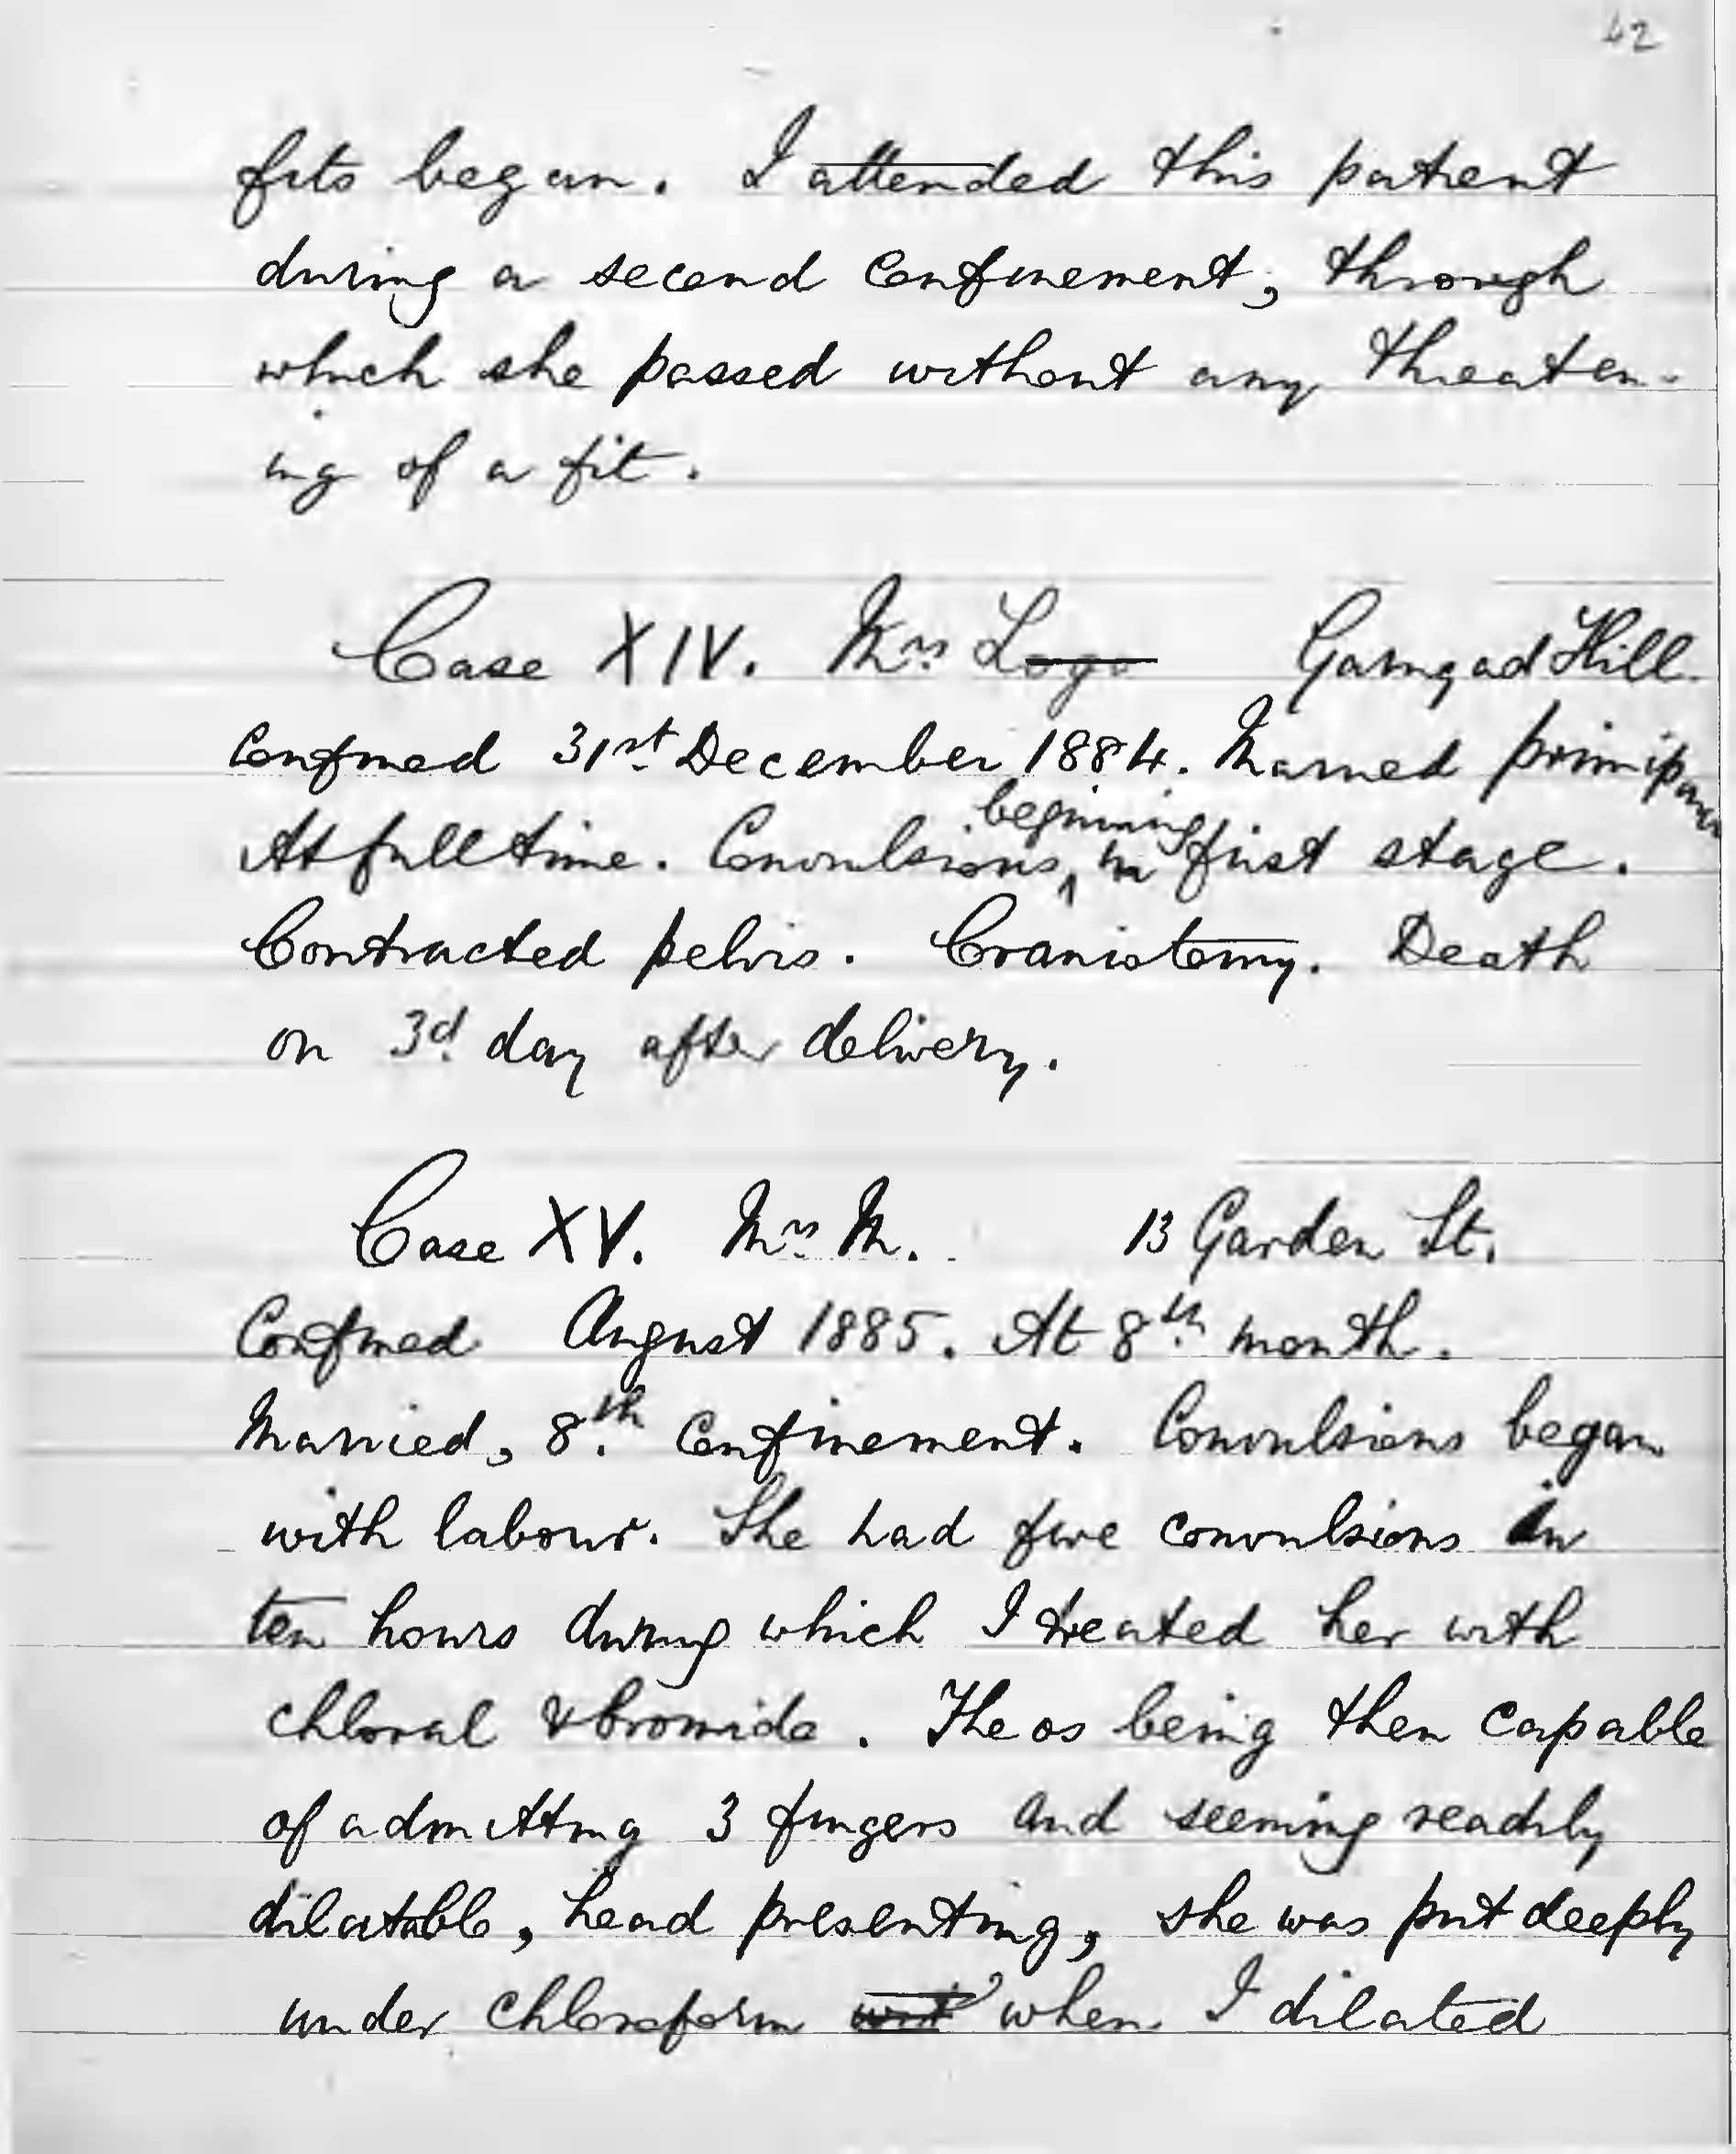 42
fits began. I attended this patient
during a second confinement, through
which she passed without any threaten-
ing of a fit.
Case XIV. Mrs L Garngad Hill.
Confined 31st December 1884. Married primipara
At full time. Convulsions beginning in first stage.
Contracted pelvis. Craniotomy. Death
on 3d day after delivery.
Case XV. Mrs M. 13 Garden St.
Confined August 1885. At 8th month.
Married, 8th confinement. Convulsions began
with labour. She had five convulsions in
ten hours during which I treated her with
chloral & bromide. The os being then capable
of admitting 3 fingers and seeming readily
dilatable, head presenting, she was put deeply
under chloroform when I dilated